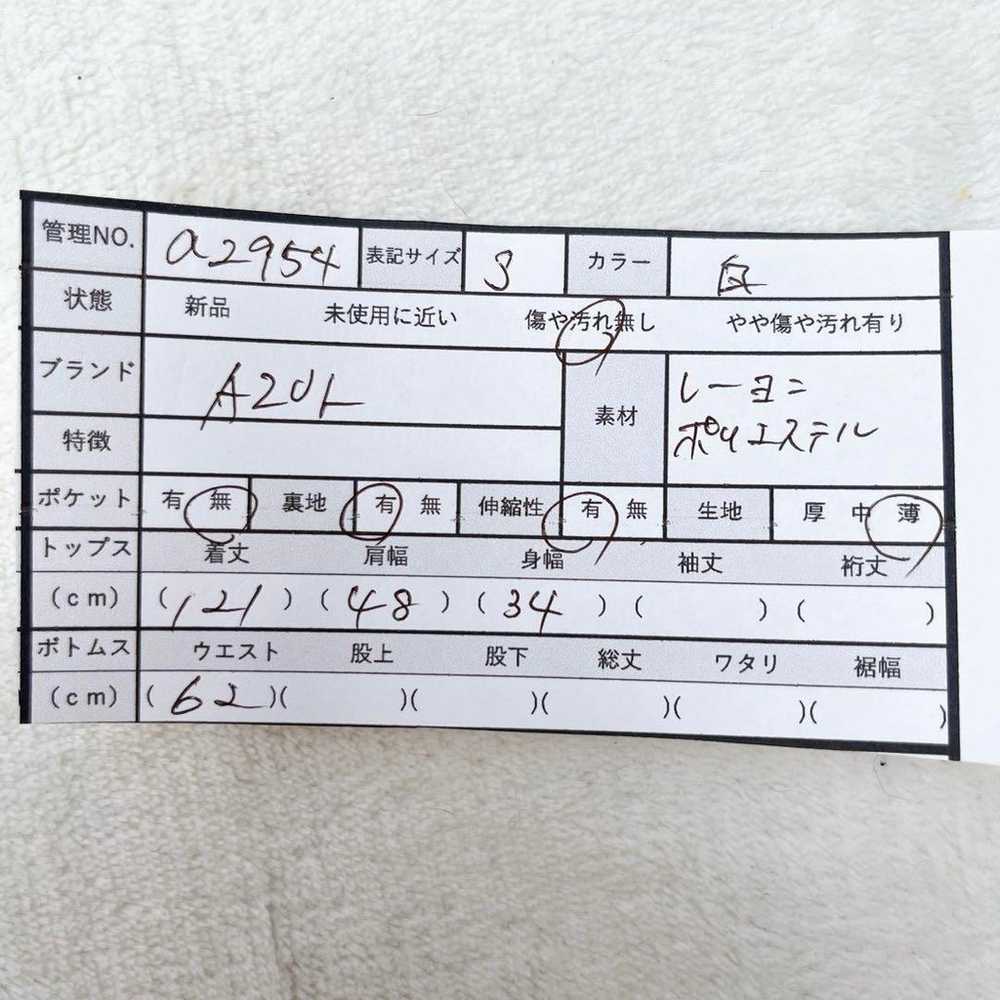 管理NO. a2954 表記サイズ S カラー 白
状態 新品 未使用に近い 傷や汚れ無し やや傷や汚れ有り
ブランド AZUL 素材 レーヨン
ポリエステル
特徴
ポケット 有 無 裏地 有 無 伸縮性 有 無 生地 厚 中 薄
トップス 着丈 肩幅 身幅 袖丈 裄丈
(cm) (121) (48) (34) ( ) ( )
ボトムス ウエスト 股上 股下 総丈 ワタリ 裾幅
(cm) (62)( )( )( )( )( )